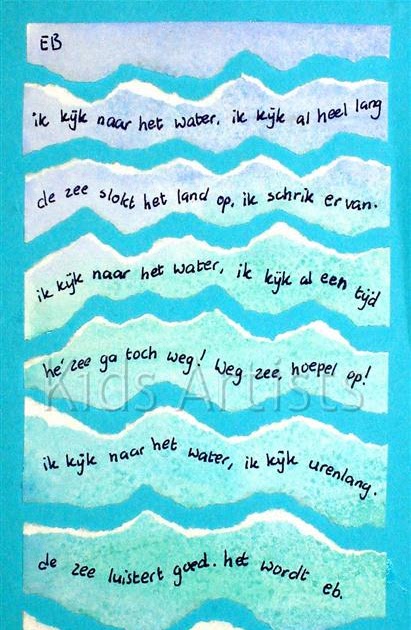 EB
ik kijk naar het water, ik kijk al heel lang
de zee slokt het land op, ik schrik ervan.
ik kijk naar het water, ik kijk al een tijd
hé zee ga toch weg! Weg zee, hoepel op!
Kids Artists
ik kijk naar het water, ik kijk urenlang.
de zee luistert goed. het wordt eb.